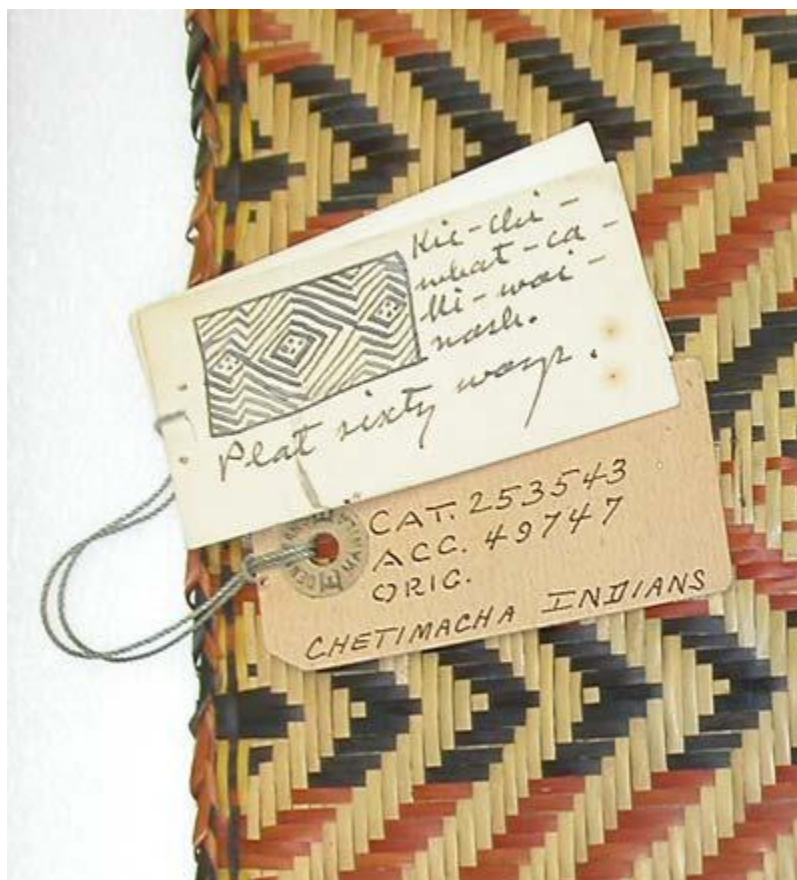 Kic-chi-
what-ca-
Mi-wai-
nash.
Plat sixty ways.
CAT. 253543
ACC. 49747
ORIG.
CHETIMACHA INDIANS